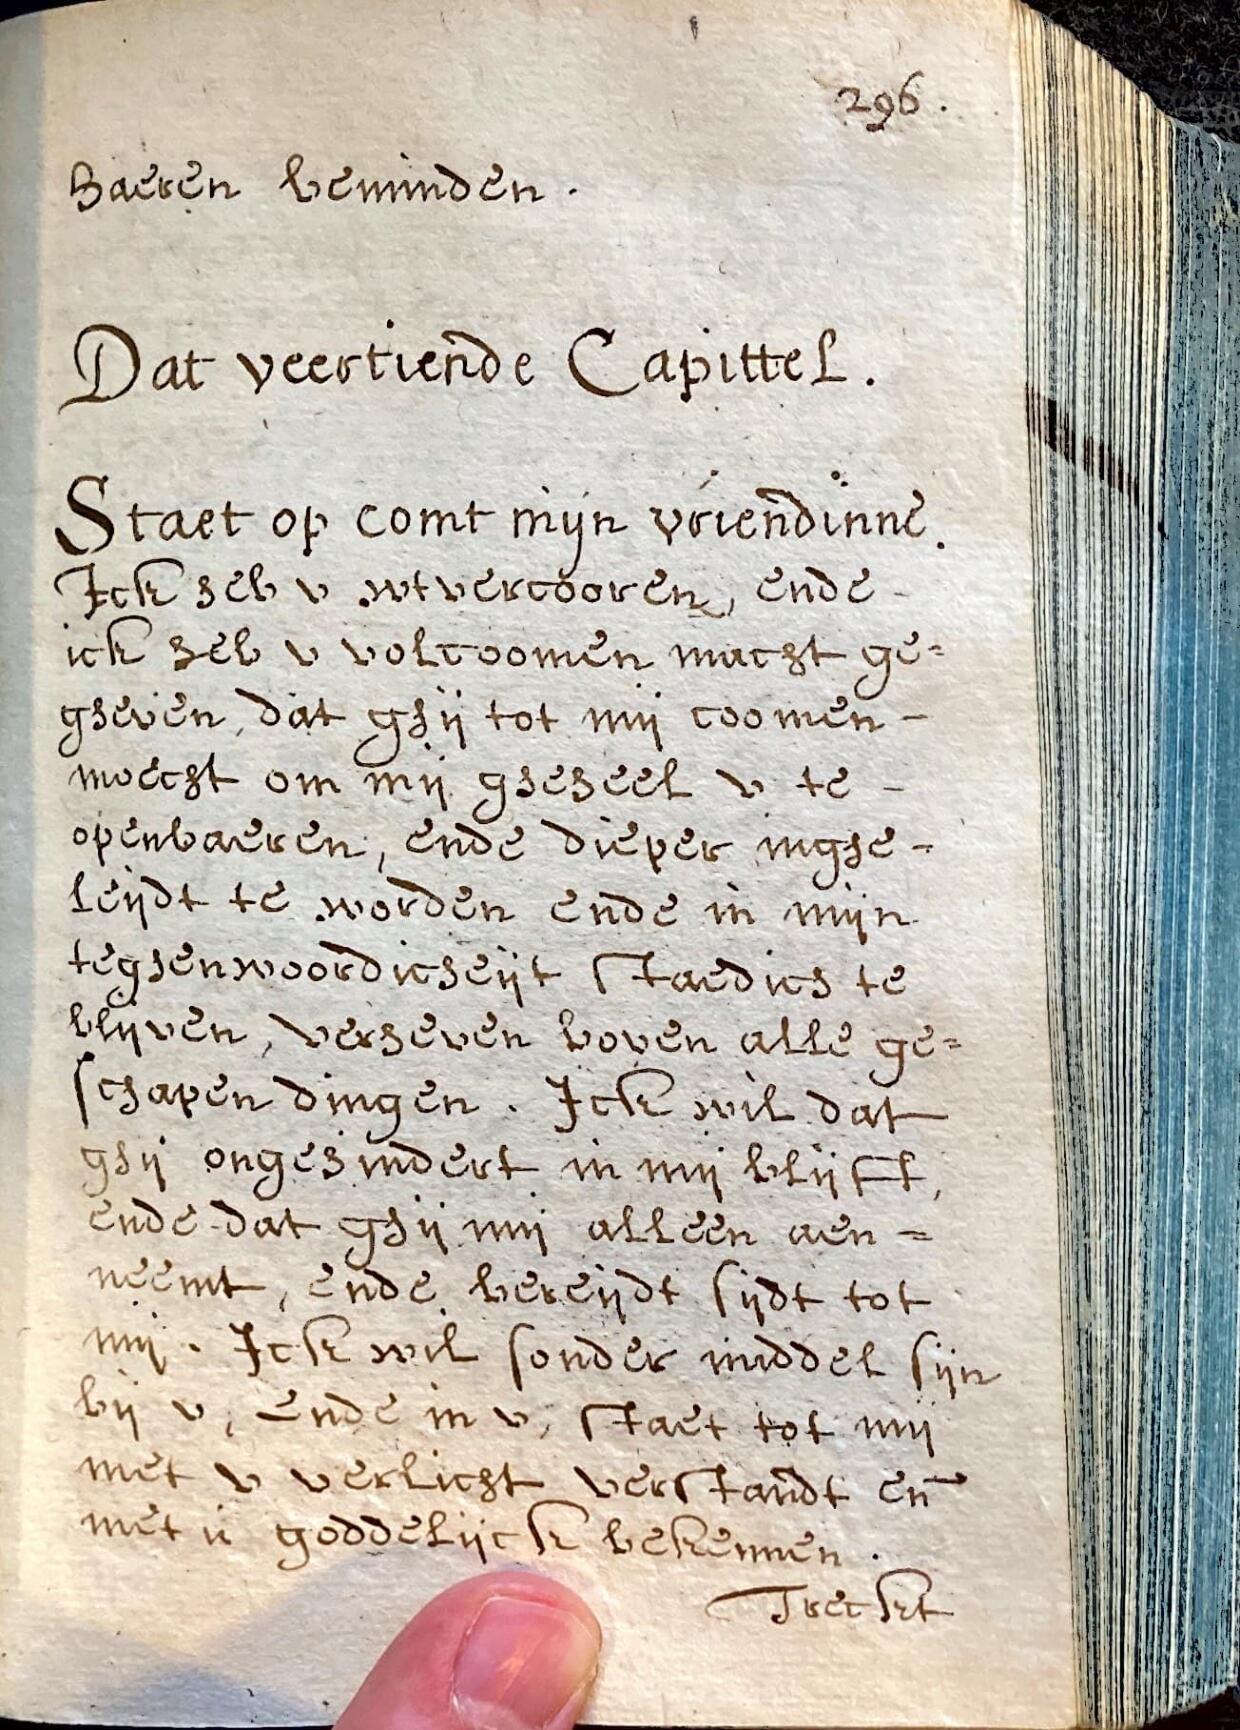 296.
haeren beminden.
Dat veertiende Capittel.
Staet op comt mijn vriendinne.
Ick heb v wtvercooren, ende -
ick heb v volcoomen macht ge=
gheven, dat ghij tot mij coomen -
moecht om mij gheheel v te -
openbaeren, ende dieper inghe -
leijdt te worden ende in mijn
teghenwoordicheijt staedich te
blijven, verheven boven alle ge=
schapen dingen. Ick wil dat
ghij ongehindert in mij blijft,
ende dat ghij mij alleen aen =
neemt, ende bereijdt sijdt tot
mij. Ick wil sonder middel sijn
bij v, ende in v, staet tot mij
met v verlicht verstandt en̄
met u goddelijck bekennen.
Treckt